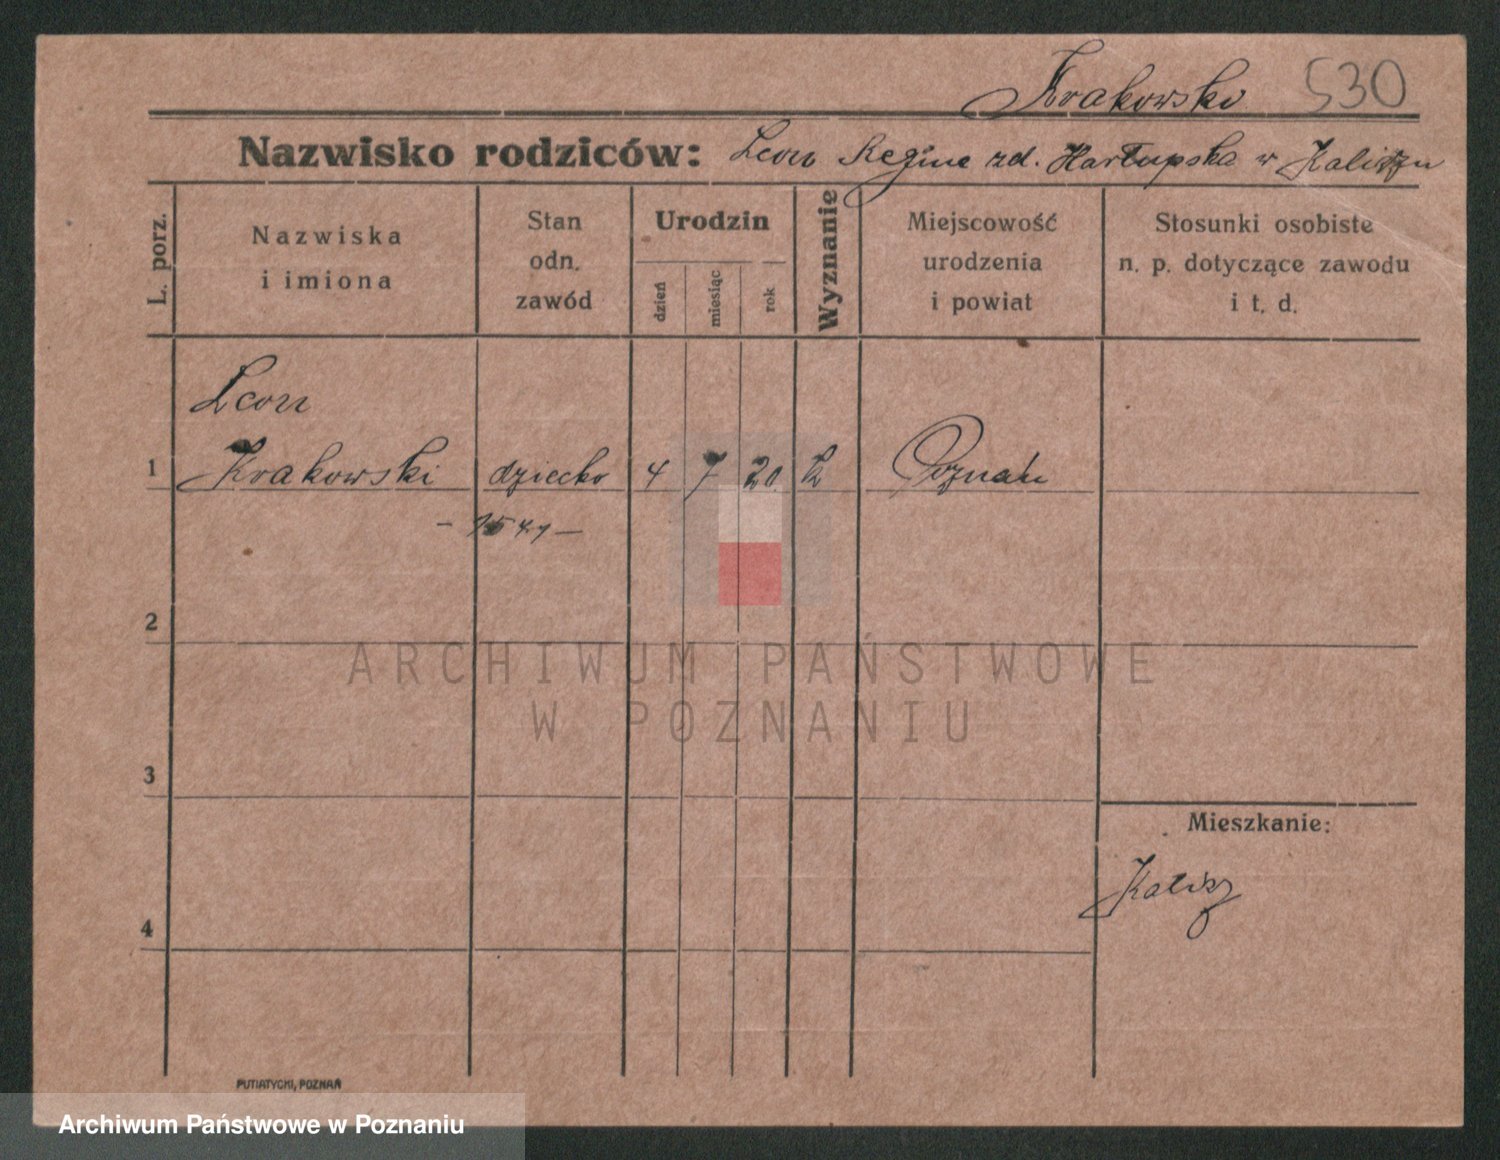 Krakowski 530
Nazwisko rodziców: Leon Regine zd. Hartupska w Kaliszu
L. porz.
Nazwiska
i imiona
Stan
odn.
zawód
Urodzin
dzień
miesiąc
rok
Wyznanie
Miejscowość
urodzenia
i powiat
Stosunki osobiste
n. p. dotyczące zawodu
i t. d.
Leon
1 Krakowski dziecko 4 7 20 k Poznań
2
3
Mieszkanie:
Kalisz
4
PUTIATYCKI, POZNAŃ
ARCHIWUM PAŃSTWOWE
W POZNANIU
Archiwum Państwowe w Poznaniu